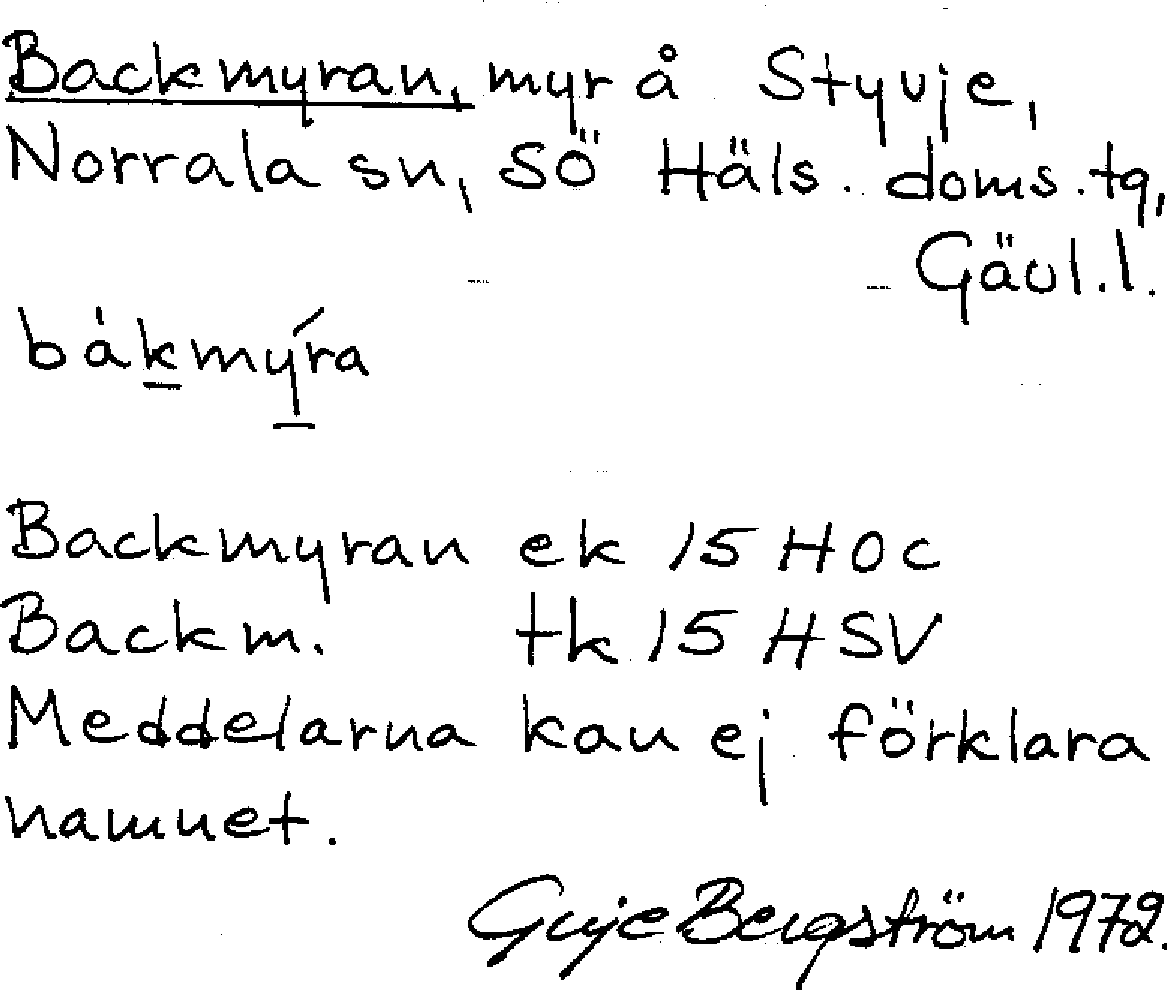 Backmyran, myr å Styvje,
Norrala sn, sö Häls. doms.tg,
Gävl.l.
bákmýra
Backmyran ek 15 H0c
Backm. tk 15 HSV
Meddelarna kan ej förklara
namnet.
Guje Bergström 1972.